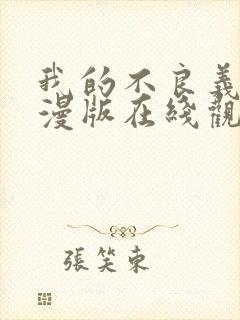 我的不良義
漫版在綫觀
張笑東